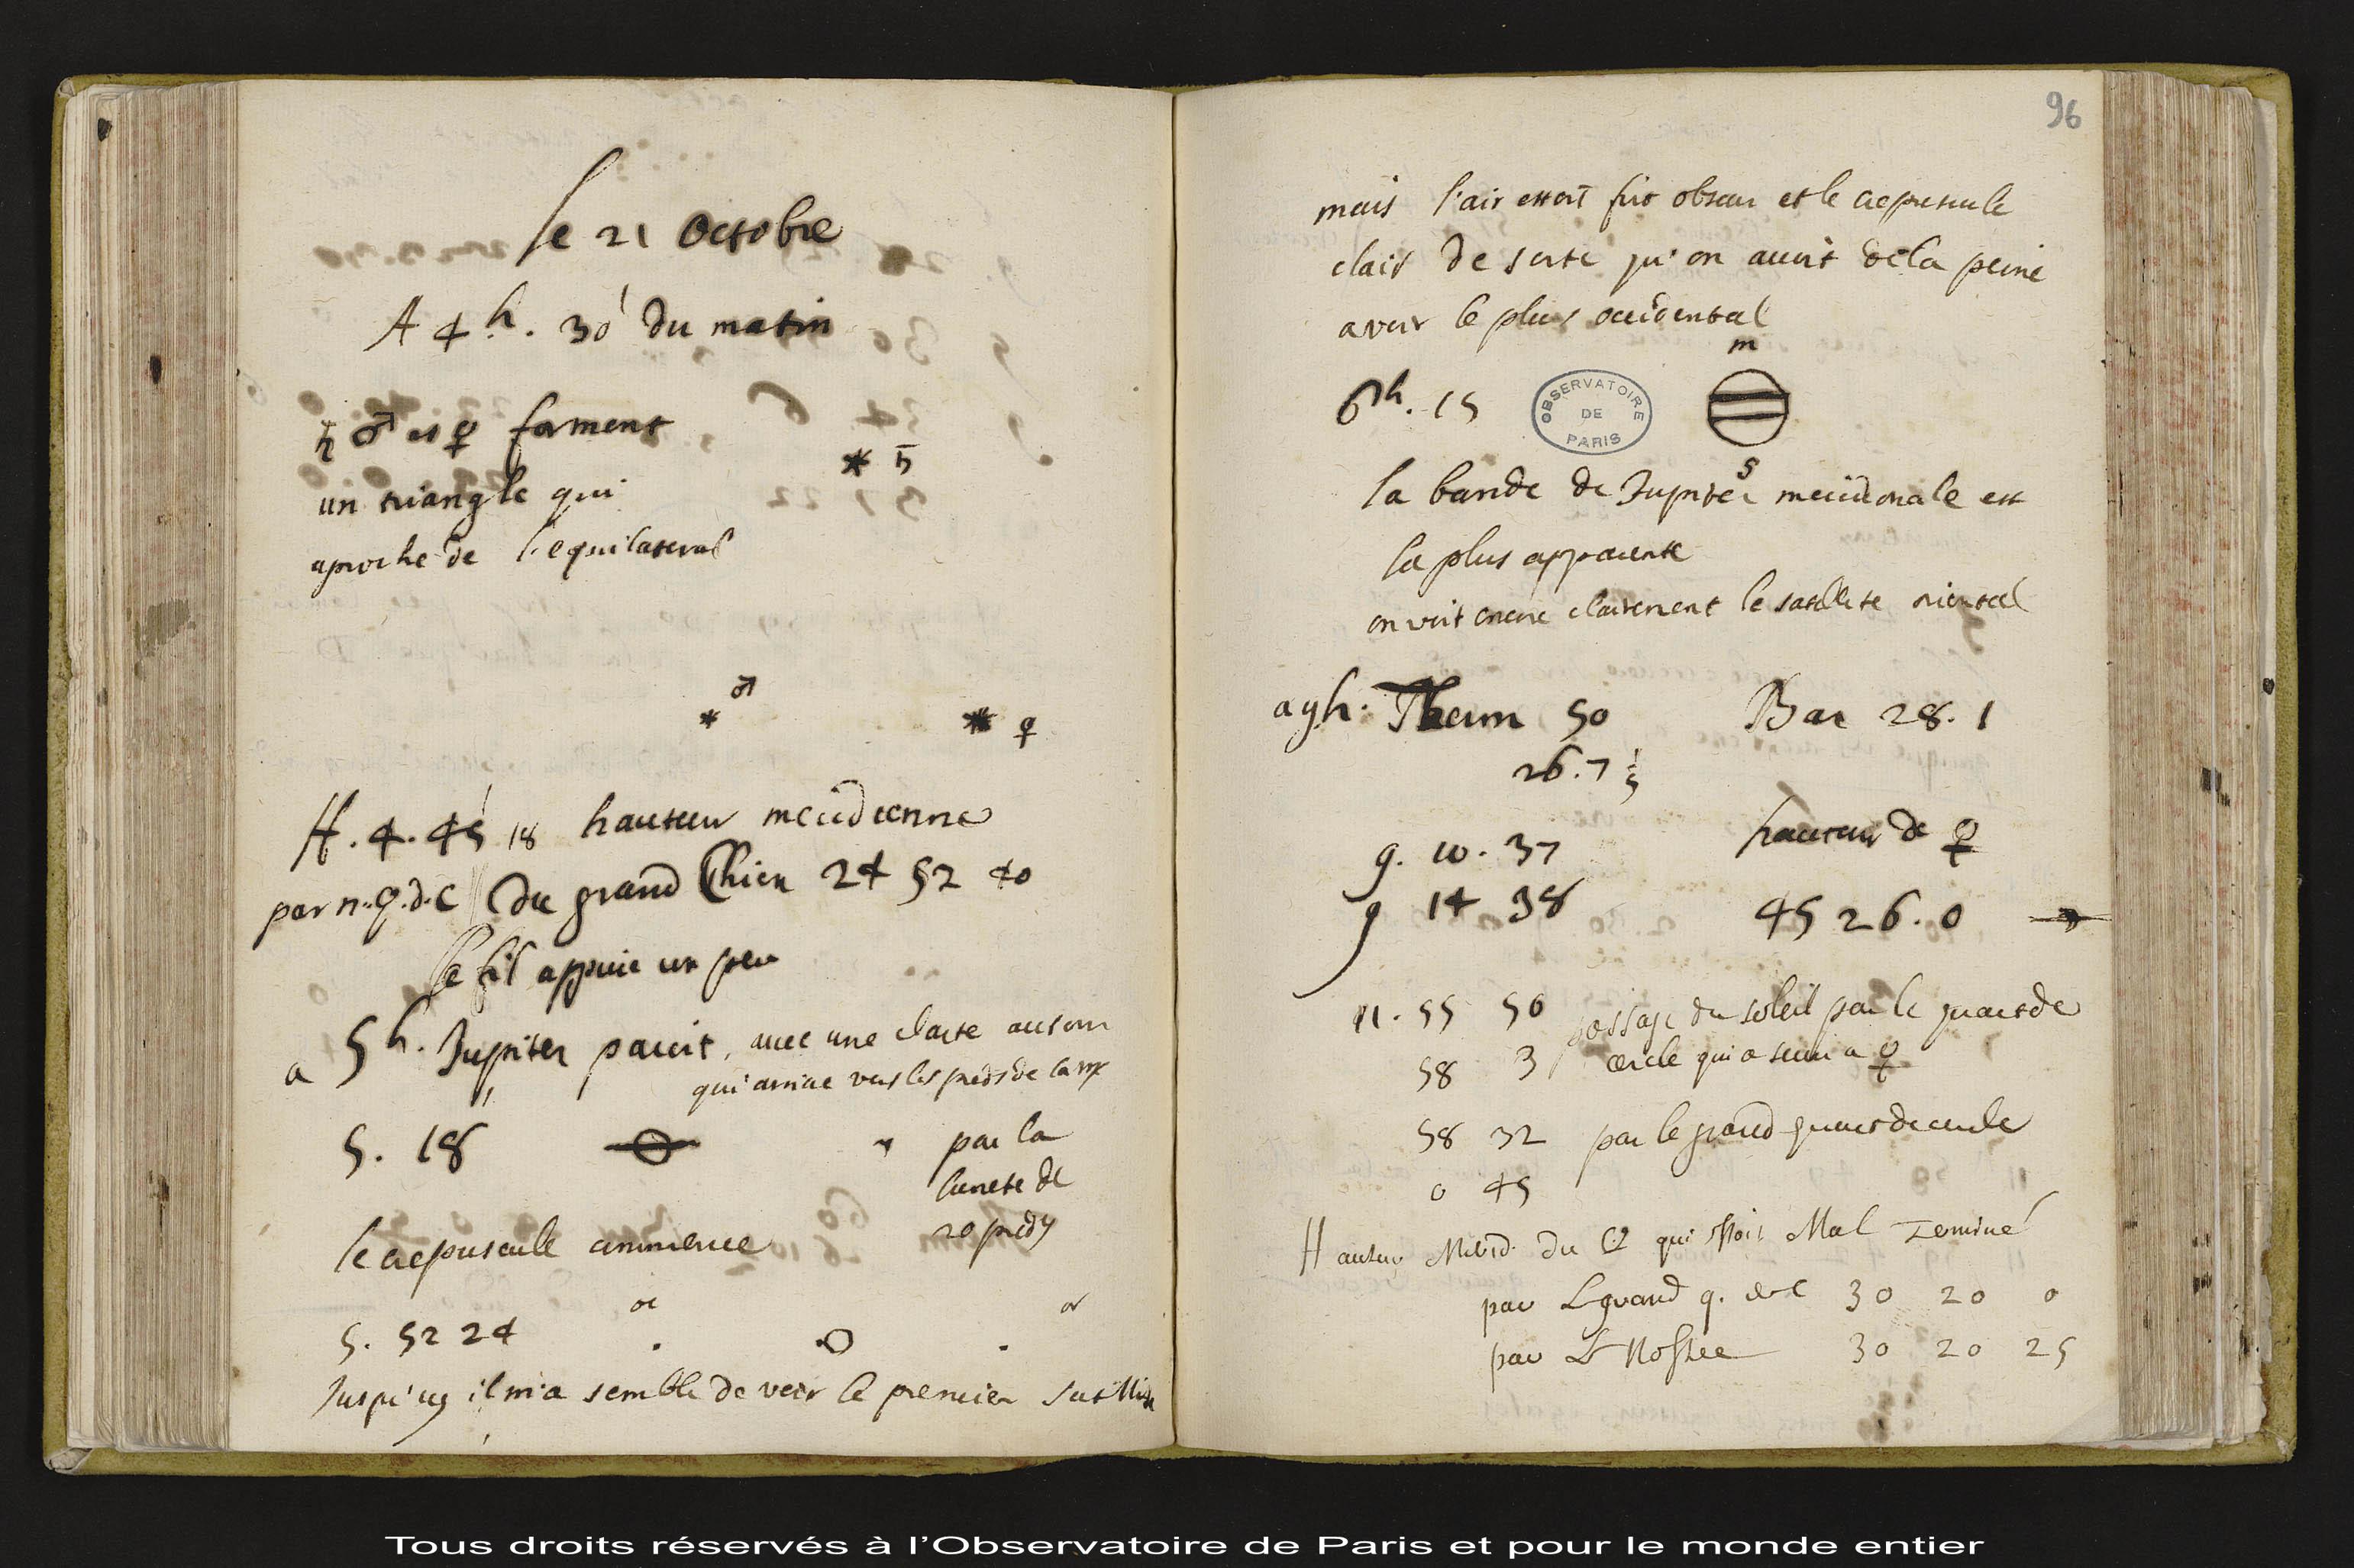 le 21 Octobre
A 4h. 30' du matin
♄ ♂ et ♀ forment
* ♄
un triangle qui
aproche de l'equilateral
♂
*
* ♀
A. 4. 45' 18 hauteur meridienne
par n. q. d. c du grand Chien 24 52 40
le fil appuie un peu
a 5h. Jupiter paroit, avec une clarte autour
qui arrive vers les pieds de la ♍
5. 18 par la
lunete de
20 pieds
le crepuscule commence
oc or
5. 52 24
Jusqu'icy il m'a semblé de voir le premier satellite
96
mais l'air estoit fort obscur et le crepuscule
clair de sorte qu'on avoit de la peine
a voir le plus occidental
m
6h. 15
OBSERVATOIRE DE PARIS
s
la bande de Jupiter meridionale est
la plus apparente
on voit encore clairement le satellite oriental
a 9h. Therm 50 Bar 28. 1
26. 7
9. 10. 37 hauteur de ♀
9 14 38 45 26. 0
11. 55 50 passage du soleil par le quart de
58 3 cercle qui a servi a ♀
58 32 par le grand quart de cercle
0 45
Hauteur Merid. du ☉ qui estoit Mal Terminé
par L grand q. de C 30 20 0
par Le Nostre 30 20 25
Tous droits réservés à l'Observatoire de Paris et pour le monde entier